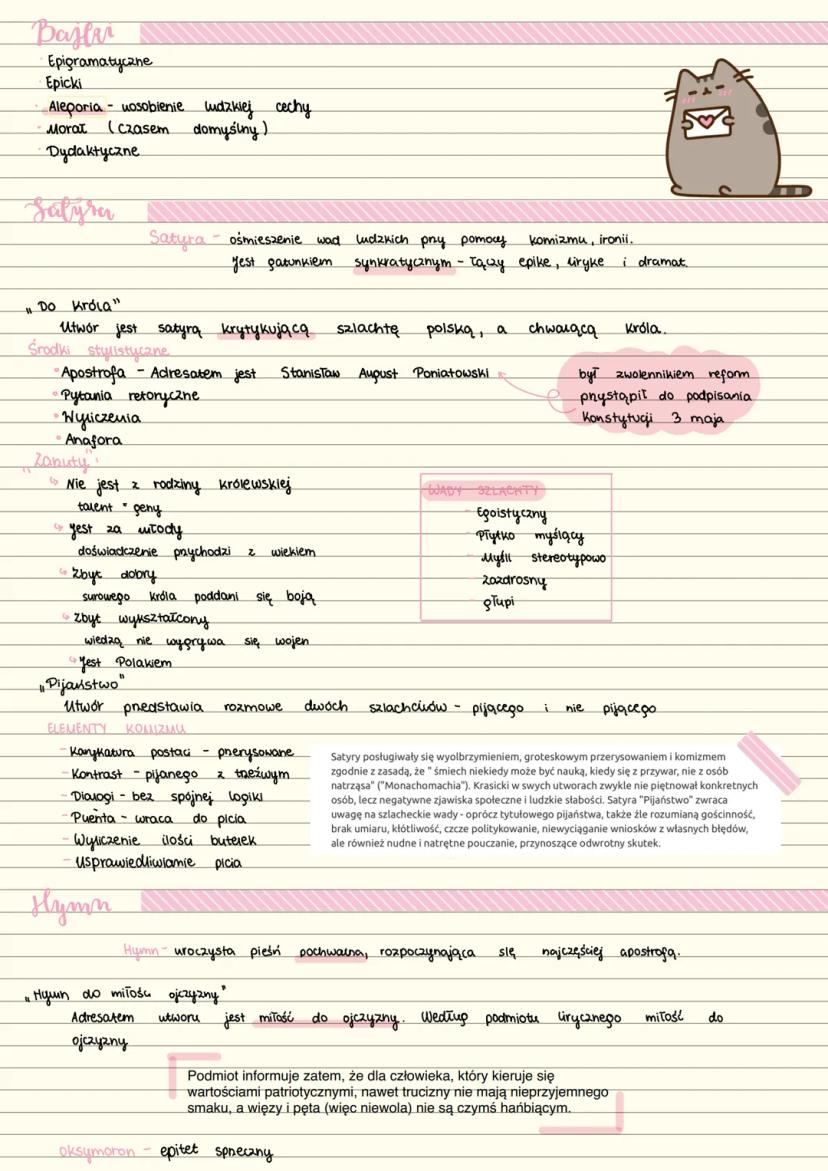 Bajki
· Epigramatyczne
· Epicki
· Alegoria - uosobienie ludzkiej cechy
· Morał (czasem domyślny)
· Dydaktyczne
Satyra
Satyra - ośmieszenie wad ludzkich przy pomocy komizmu, ironii.
Jest gatunkiem synkratycznym - łączy epike, lirykę i dramat.
"Do króla"
Utwór jest satyrą krytykującą szlachtę polską, a chwalącą króla.
Środki stylistyczne
• Apostrofa - Adresatem jest Stanisław August Poniatowski
był zwolennikiem reform
przystąpił do podpisania
Konstytucji 3 maja
• Pytania retoryczne
• Wyliczenia
• Anafora
"Zarzuty":
↳ Nie jest z rodziny królewskiej
talent = geny
↳ Jest za młody
doświadczenie przychodzi z wiekiem
↳ Zbyt dobry
surowego króla poddani się boją
↳ Zbyt wykształcony
wiedzą nie wygrywa się wojen
↳ Jest Polakiem
WADY SZLACHTY
- Egoistyczny
- Płytko myślący
- Myśli stereotypowo
- Zazdrosny
- głupi
"Pijaństwo"
Utwór przedstawia rozmowe dwóch szlachciców - pijącego i nie pijącego
ELEMENTY KOMIZMU
- Karykatura postaci - przerysowane
- Kontrast - pijanego z trzeźwym
- Dialogi - bez spójnej logiki
- Puenta - wraca do picia
- Wyliczenie ilości butelek
- Usprawiedliwianie picia
Satyry posługiwały się wyolbrzymieniem, groteskowym przerysowaniem i komizmem
zgodnie z zasadą, że " śmiech niekiedy może być nauką, kiedy się z przywar, nie z osób
natrząsa" ("Monachomachia"). Krasicki w swych utworach zwykle nie piętnował konkretnych
osób, lecz negatywne zjawiska społeczne i ludzkie słabości. Satyra "Pijaństwo" zwraca
uwagę na szlacheckie wady - oprócz tytułowego pijaństwa, także źle rozumianą gościnność,
brak umiaru, kłótliwość, czcze politykowanie, niewyciąganie wniosków z własnych błędów,
ale również nudne i natrętne pouczanie, przynoszące odwrotny skutek.
Hymn
Hymn - uroczysta pieśń pochwalna, rozpoczynająca się najczęściej apostrofą.
"Hymn do miłości ojczyzny"
Adresatem utworu jest miłość do ojczyzny. Według podmiotu lirycznego miłość do
ojczyzny
Podmiot informuje zatem, że dla człowieka, który kieruje się
wartościami patriotycznymi, nawet trucizny nie mają nieprzyjemnego
smaku, a więzy i pęta (więc niewola) nie są czymś hańbiącym.
oksymoron - epitet sprzeczny